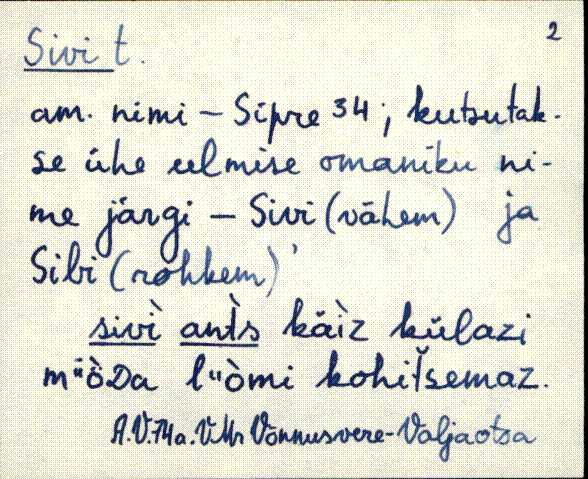 2
Sivi t.
am. nimi – Sipre 34; kutsutak-
se ühe eelmise omaniku ni-
me järgi – Sivi (vähem) ja
Sibi (rohkem)
sivì ant̀s käìz külazi
m"òDa l"òmi kohiťsemaz.
A.V. 74a. V.Mr Võnnusvere-Valjaotsa